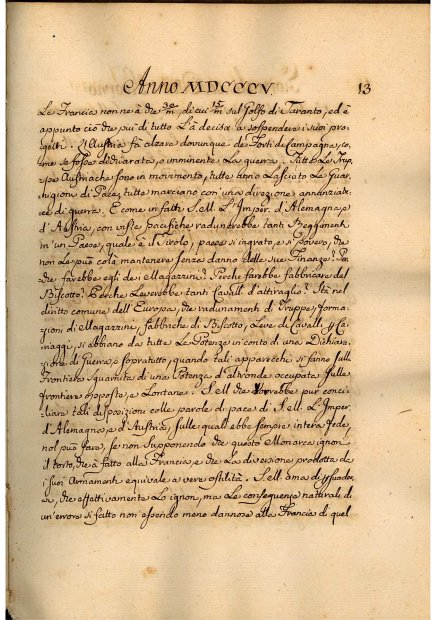 Anno MDCCCV. 13
La Francia non ne à che 30/m, di cui 15/m sul Golfo di Taranto, ed è
appunto ciò che più di tutto l'à decisa a sospendere i suoi pro=
getti. L'Austria fa alzare dovunque de' Forti di Campagna, co=
me se fosse dichiarata, o imminente la guerra. Tutte le Trup=
pe Austriache sono in movimento, tutte ànno lasciato le Guar=
nigione di Pace, tutte marciano con una direzione annunziatri=
ce di guerra. E come in fatti S. M. l'Imper. d'Alemagna, e
d'Austria, con viste pacifiche radunerebbe tanti Reggimenti
in un Paese, quale è il Tirolo, paese sì ingrato, e sì povero, che
non le può colà mantenere senza danno delle sue Finanze? Per=
che farebbe egli de' Magazzini? Perche farebbe fabbricare del
Biscotto? Perche leverebbe tanti Cavalli d'attiraglio? Stà nel
diritto comune dell'Europa, che radunamenti di Truppe, forma=
zioni di Magazzini, fabbriche di Biscotto, leve di Cavalli per Ca=
riaggi, si abbiano da tutte le Potenze in conto di una Dichiara=
zione di Guerra, e sopratutto, quando tali apparecchi si fanno sulla
Frontiera guarnita di una Potenza d'altronde occupata sulle
frontiere opposte, e lontane. S. M. che vorrebbe pur conci=
liare tali disposizioni colle parole di pace di S. M. l'Imper.
d'Alemagna, e d'Austria, sulle quali ebbe sempre intera fede,
nol può fare, se non supponendo che questo Monarca ignori
il torto, che à fatto alla Francia, e che la diversione prodotta da'
i suoi Armamenti equivale a vere ostilità. S. M. ama di persuader=
si, che effettivamente lo ignori, ma le conseguenze naturali di
un'errore sì fatto non essendo meno dannose alla Francia di quel